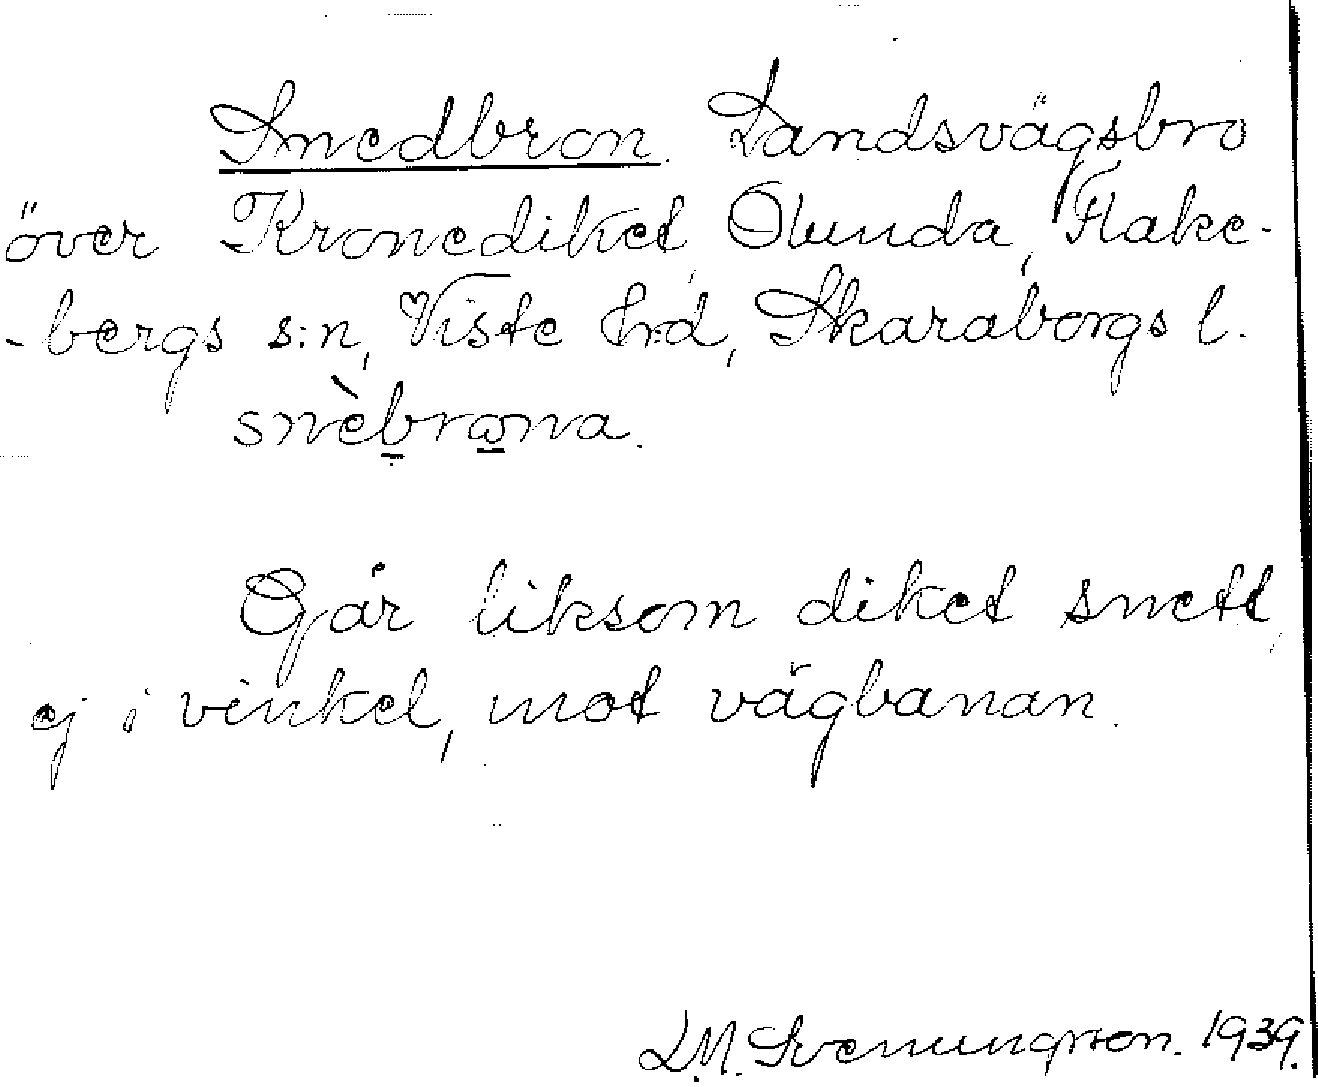 Snedbron. Landsvägsbro
över Kronediket, Olunda, Flake-
-bergs s:n, Viste h:d, Skaraborgs l.
snèbrona.
Går liksom diket snett,
ej i vinkel, mot vägbanan.
L.M. Svenungsson. 1939.